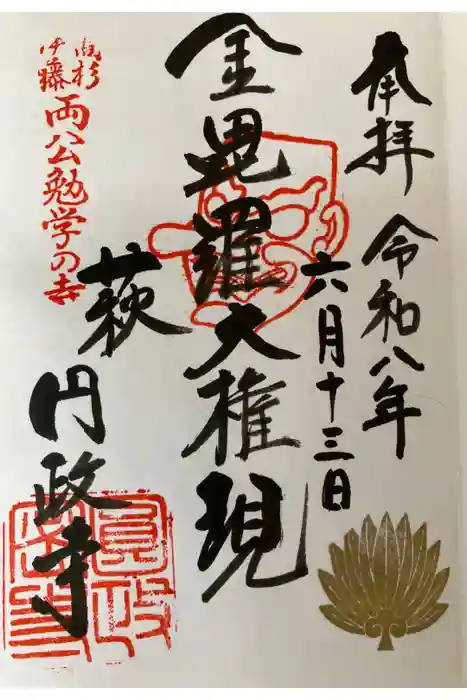 奉拝
令和八年
六月十三日
金毘羅大権現
萩
円政寺
高杉
伊藤
両公勉学の寺